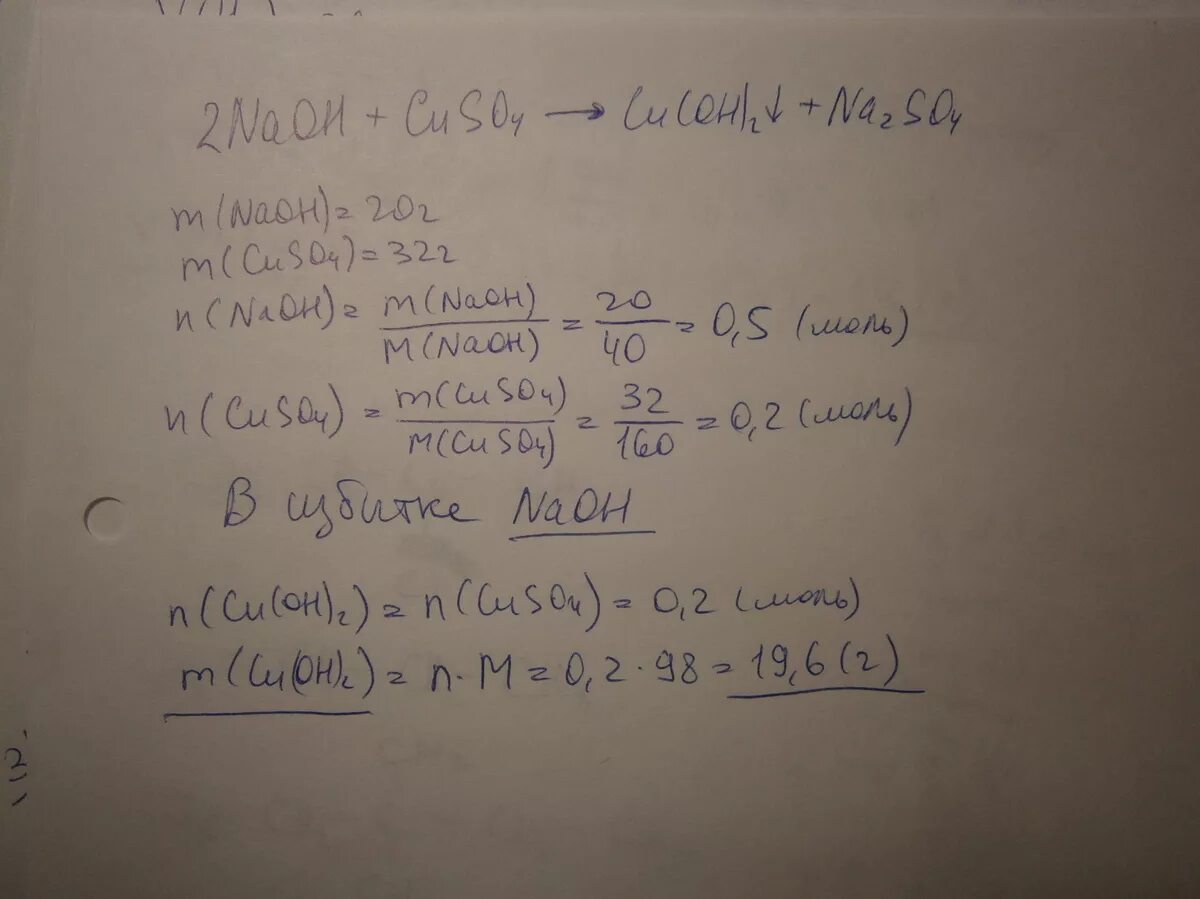 2NaOH + CuSO₄ → Cu(OH)₂↓ + Na₂SO₄
m(NaOH) = 20г
m(CuSO₄) = 32г
n(NaOH) = m(NaOH)/M(NaOH) = 20/40 = 0,5 (моль)
n(CuSO₄) = m(CuSO₄)/M(CuSO₄) = 32/160 = 0,2 (моль)
В избитке NaOH
n(Cu(OH)₂) = n(CuSO₄) = 0,2 (моль)
m(Cu(OH)₂) = n·M = 0,2·98 = 19,6 (г)